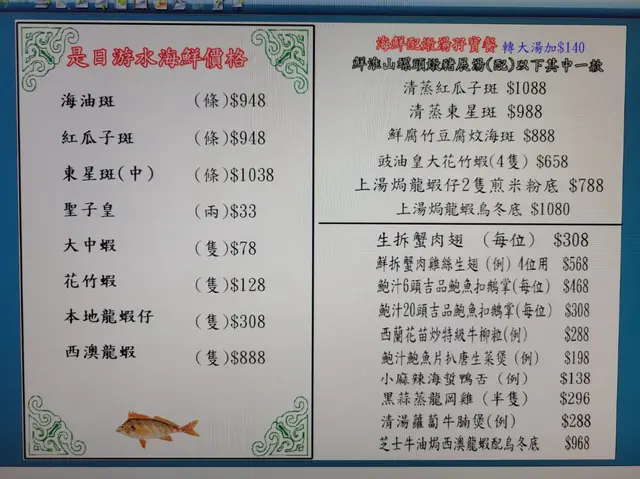 是日游水海鮮價格
海油斑 (條)$948
紅瓜子斑 (條)$948
東星斑(中) (條)$1038
聖子皇 (兩)$33
大中蝦 (隻)$78
花竹蝦 (隻)$128
本地龍蝦仔 (隻)$308
西澳龍蝦 (隻)$888
海鮮配燉湯孖寶餐 轉大湯加$140
鮮淮山螺頭燉豬展湯(配)以下其中一款
清蒸紅瓜子斑 $1088
清蒸東星斑 $988
鮮腐竹豆腐炆海斑 $888
豉油皇大花竹蝦(4隻) $658
上湯焗龍蝦仔2隻煎米粉底 $788
上湯焗龍蝦烏冬底 $1080
生拆蟹肉翅 (每位) $308
鮮拆蟹肉雞絲生翅 (例) 4位用 $568
鮑汁6頭吉品鮑魚扣鵝掌(每位) $468
鮑汁20頭吉品鮑魚扣鵝掌(每位) $308
西蘭花苗炒特級牛柳粒(例) $288
鮑汁鮑魚片扒唐生菜煲 (例) $198
小麻辣海蜇鴨舌 (例) $138
黑蒜蒸龍岡雞 (半隻) $296
清湯蘿蔔牛腩煲(例) $288
芝士牛油焗西澳龍蝦配烏冬底 $968